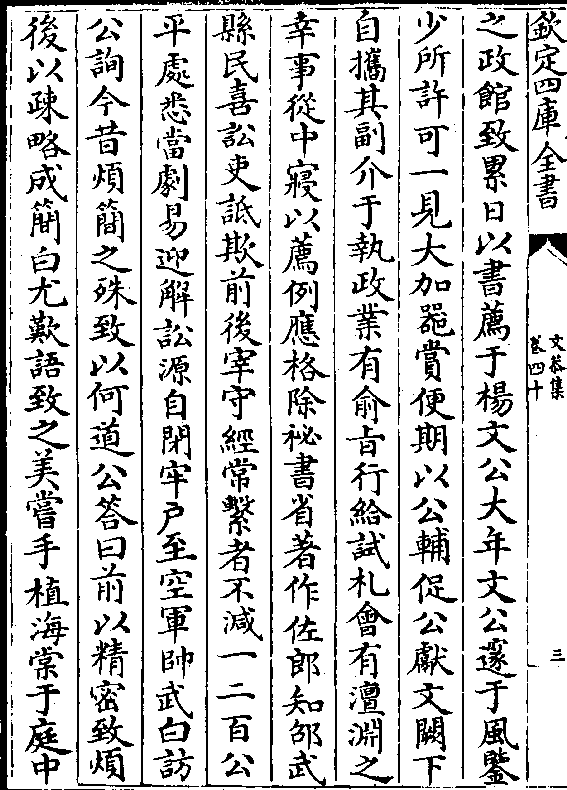 欽定四庫全書
文恭集
卷四十
三
之政館致累日以書薦于楊文公大年文公邃于風鑒
少所許可一見大加器賞便期以公輔促公獻文闕下
自攜其副介于執政業有俞旨行給試札會有澶淵之
幸事從中寢以薦例應格除祕書省著作佐郎知邵武
縣民喜訟吏詆欺前後宰守經常繫者不減一二百公
平處悉當劇易迎解訟源自閉牢戶至空軍帥武白訪
公詢今昔煩簡之殊致以何道公答曰前以精密致煩
後以疎略成簡白尤歎語致之美嘗手植海棠于庭中